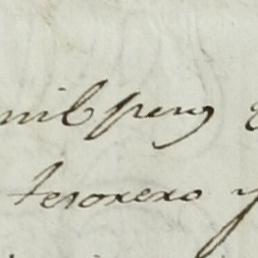 mil pesos
tesorero y